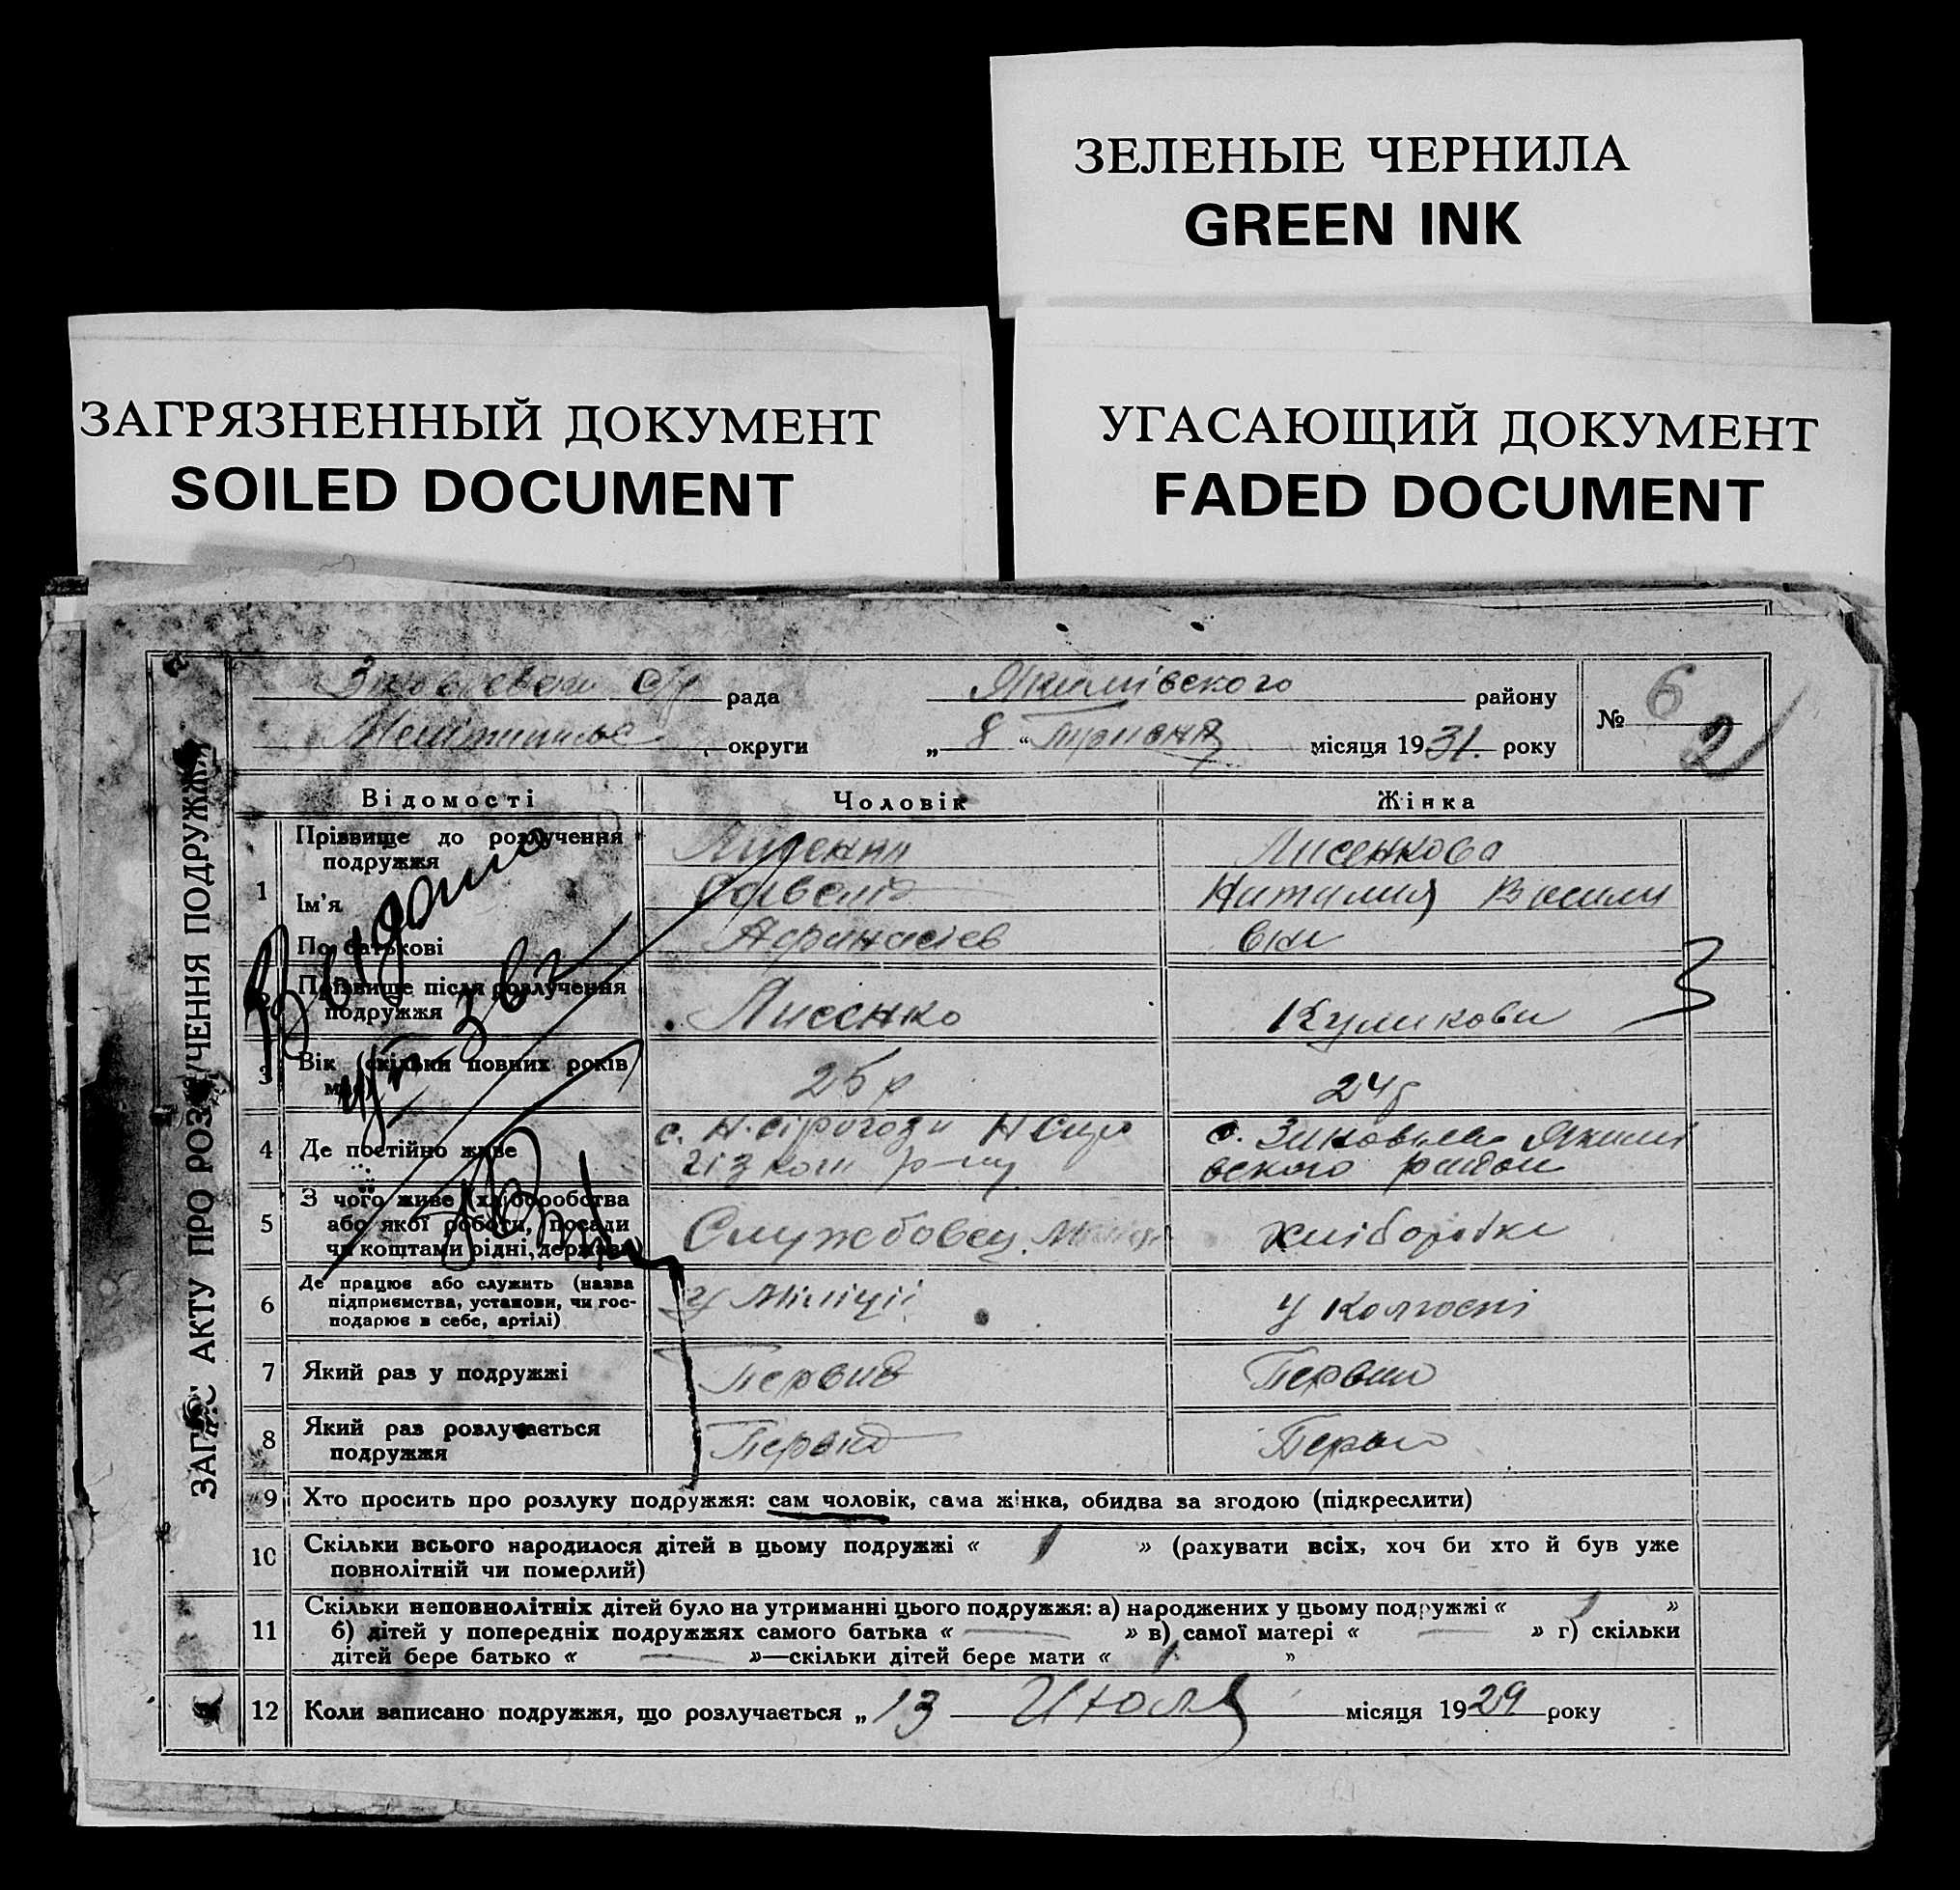 ЗЕЛЕНЫЕ ЧЕРНИЛА
GREEN INK
ЗАГРЯЗНЕННЫЙ ДОКУМЕНТ
SOILED DOCUMENT
УГАСАЮЩИЙ ДОКУМЕНТ
FADED DOCUMENT
ЗАПИС АКТУ ПРО РОЗЛУЧЕННЯ ПОДРУЖЖЯ
с/р рада Якимівского району № 6
округи „ 8 “ місяця 1931. року 2
Відомості Чоловік Жінка
1 Прізвище до розлучення подружжя Лисенко Лисенкова
Ім'я Савелій Наталия Васили
По батькові Афанасієв вна
2 Прізвище після розлучення подружжя Лисенко Куликова
3 Вік скільки повних років має 25 р 24 р
4 Де постійно живе с. Н. Сірогози с. Якимі
р-ну вского район
5 З чого живе (хліборобства
або якої роботи, посади
чи коштами рідні, держави) Службовец хліборобка
6 Де працює або служить (назва
підприємства, установи, чи гос-
подарює в себе, артілі) у Міліції у колгоспі
7 Який раз у подружжі Первий
8 Який раз розлучається
подружжя Первий
9 Хто просить про розлуку подружжя: сам чоловік, сама жінка, обидва за згодою (підкреслити)
10 Скільки всього народилося дітей в цьому подружжі « 1 » (рахувати всіх, хоч би хто й був уже
повнолітній чи померлий)
11 Скільки неповнолітніх дітей було на утриманні цього подружжя: а) народжених у цьому подружжі « 1 »
б) дітей у попередніх подружжях самого батька « — » в) самої матері « — » г) скільки
дітей бере батько « — »—скільки дітей бере мати « 1 »
12 Коли записано подружжя, що розлучається „ 13 Июля місяця 1929 року
Выдано